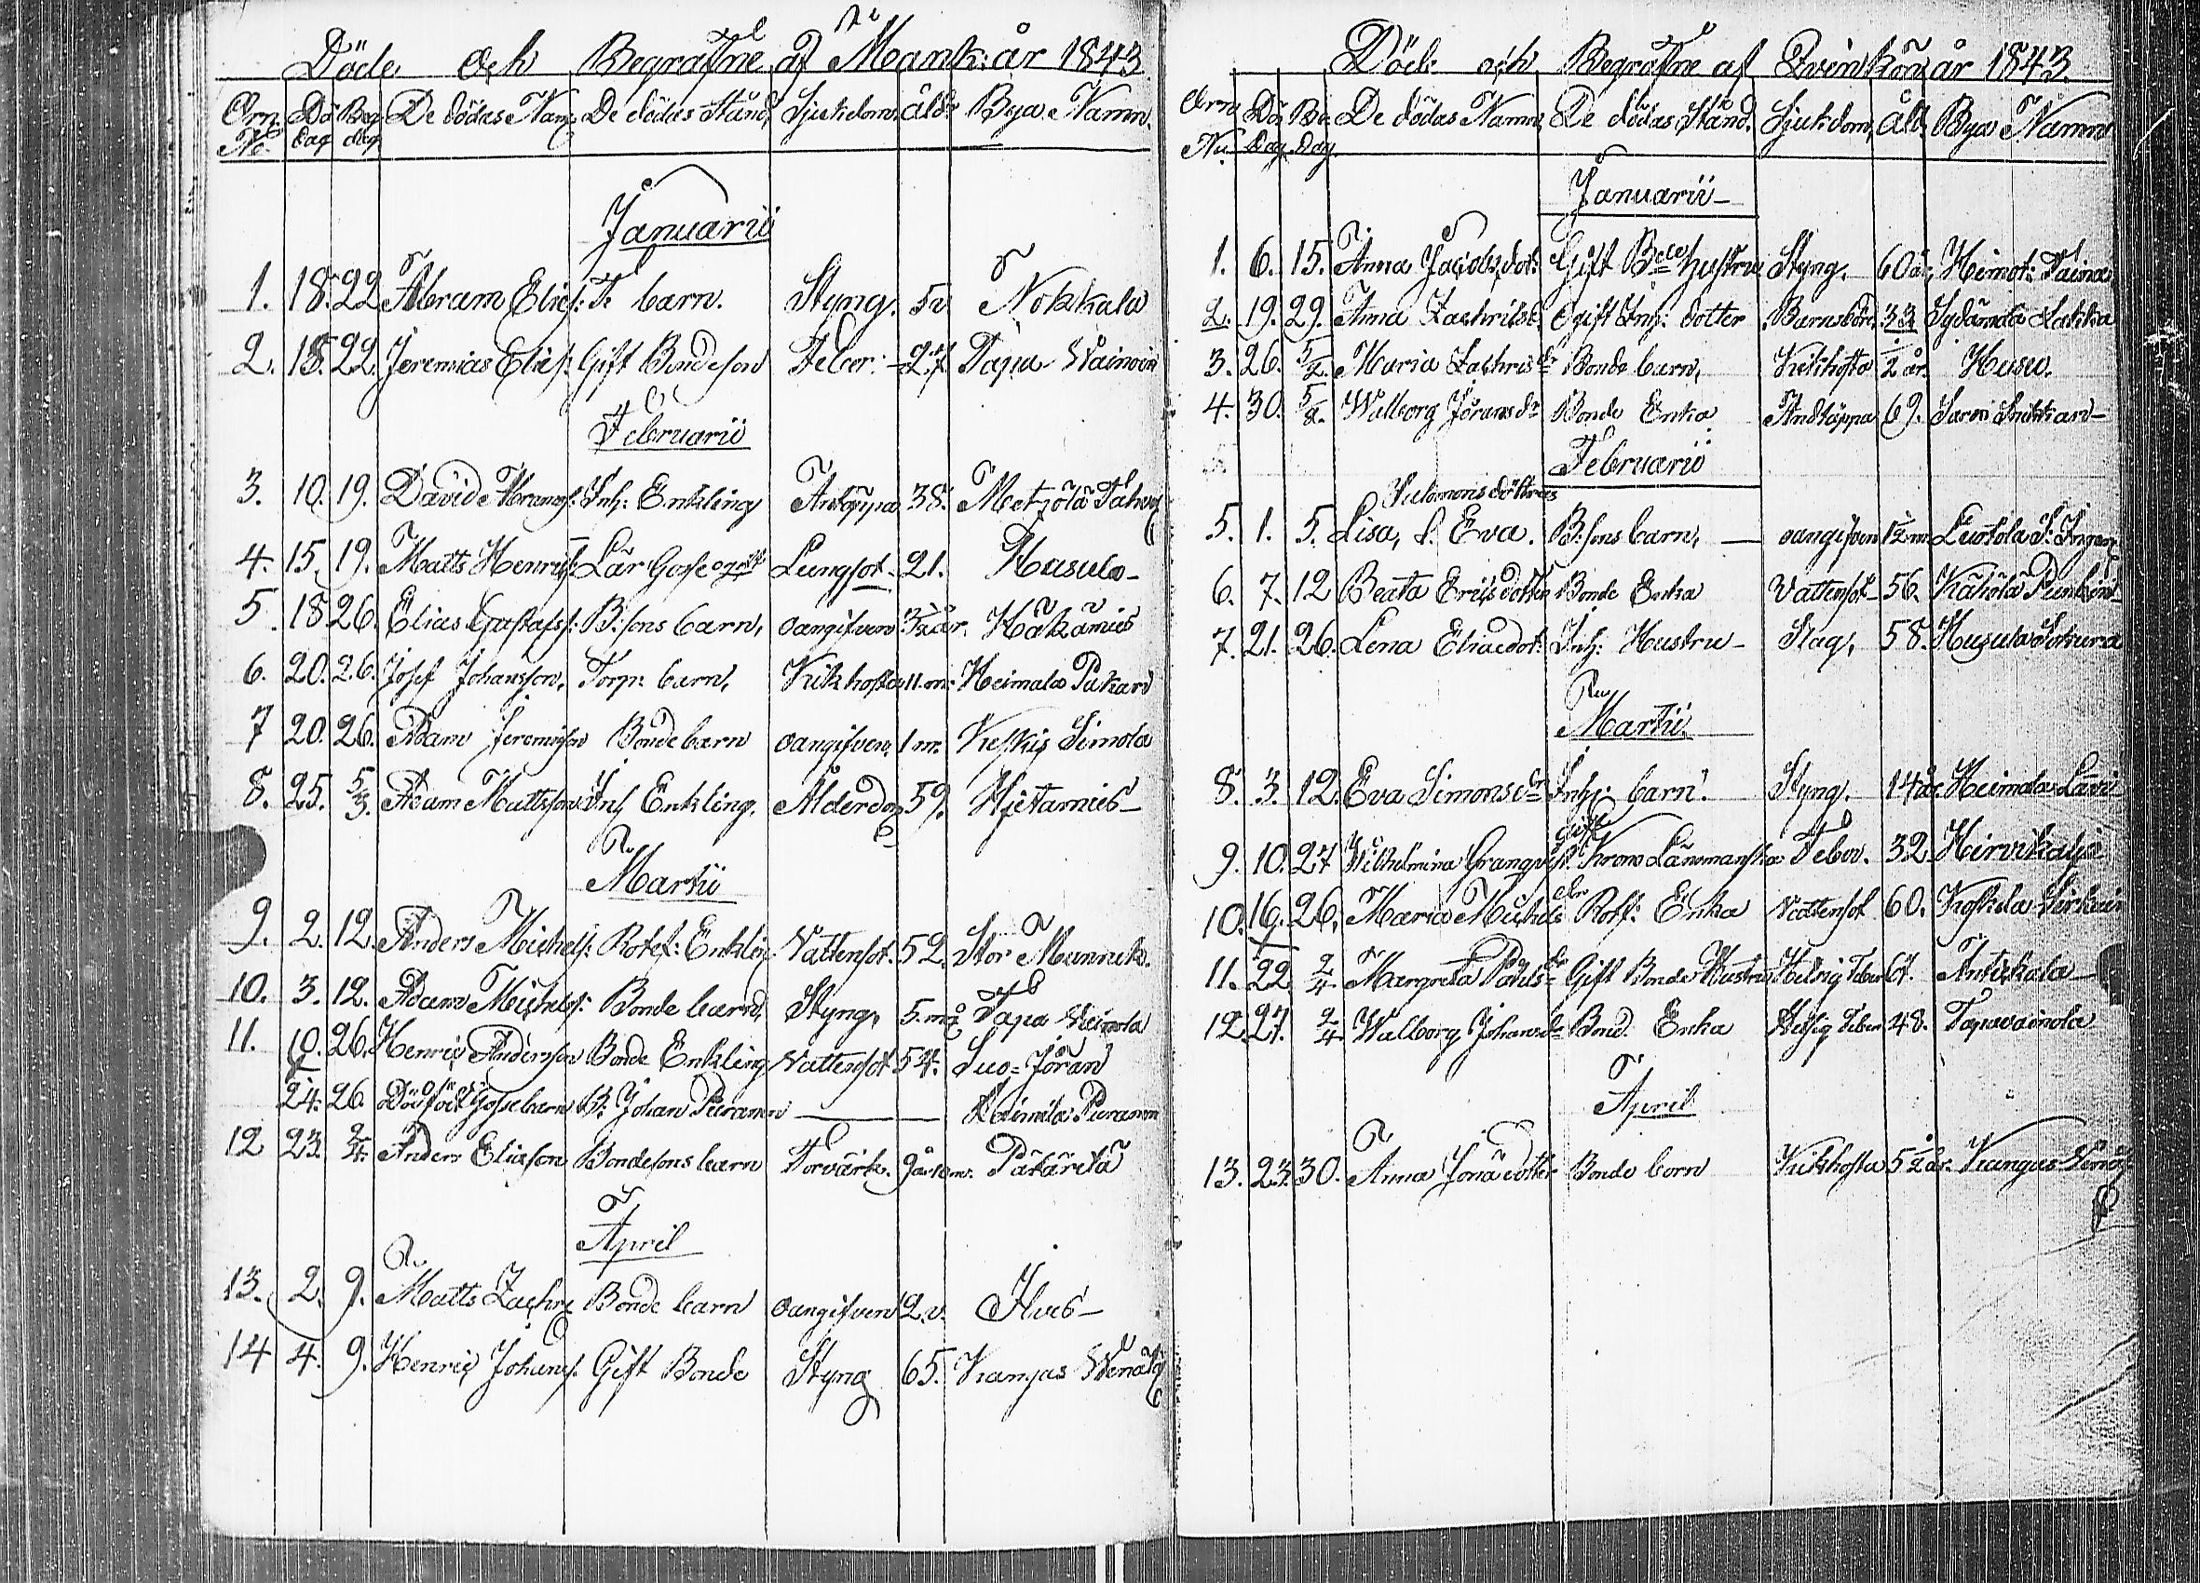 Döde och Begrafne af Mank: år 1843
Orn. No Dö dag Beg dag De dödas Namn De dödas Stånd, Sjukdom. Åld: Bya Namn.
Januarii
1. 18. 22 Abram Elies: T: barn. Styng. 5 v Nokkala
2. 18. 22. Jeremias Elies: Gift Bondeson Feber: 27. Tapa Wainoin
Februarii
3. 10. 19. David Abrams: Inh: Enkling Andtäppa 38. Metzölä
4. 15. 19. Matts Henrics: Lär Gosse Lungsot. 21. Husula
5 18 26. Elias Gustafss: B:sons barn, oangifven år. Häkämies
6. 20. 26. Josef Johansson, Torp: barn, Kikhosta 11. m: Heimala Pukari
7 20. 26. Adam Jeremison Bonde barn oangifven. 1 m. Keskis Simola
8. 25. 5/3. Adam Mattsson Inh Enkling. Ålderdom 59. Hietamies
Martii
9. 2. 12. Anders Michels: Rotef: Enkling Vattensot. 52. Stor Munnuk.
10. 3. 12. Adam Michels: Bonde barn, Styng, 5. mån Tapa Wainola
11. 10. 26. Henric Andersson Bonde Enkling Vattensot 54. Suo=Jöran
24. 26. Dödfödt Gossebarn B: Johan Pieramn — Heimila Pieramn
12 23. 2/4. Anders Eliasson Bondesons barn Torvärk. 9 år 10 m. Pätäretä
April
13. 2. 9. Matts Zachr: Bonde barn oangifven 2. v. Ilves
14 4. 9. Henric Johans: Gift Bonde Styng 65. Kangas
Död: och Begrafne af Qvinkön år 1843.
Orn Nu. Dö Dag Be Dag. De dödas Namn, De dödas Stånd. Sjukdom, Åld. Bya Namn
Januarii
1. 6. 15. Anna Jacobsdot: Gift Hustru Styng. 60 år, Heimot:
2. 19. 29. Anna Zachrisd: Ogift Inh: dotter Barnsbörd, 33 Sydänmä Lakka
3. 26. 5/2. Maria Zachrisdr Bonde barn, Kikhosta 1/2 år. Husu.
4. 30. 5/2. Walborg Jöransdr Bonde Enka Andtäppa 69. Saren
Februarii
5. 1. 5. Salomons döttrar Lisa, &. Eva. B:sons barn, — oangifven m. Leutola
6. 7. 12 Beata Ericsdotter Bonde Enka Vattensot 56. Kähölä
7. 21. 26. Lena Eliaedot: Inh: Hustru Slag, 58. Husula
Martii.
8. 3. 12. Eva Simonsdr Inh: barn. Styng. 14 år. Heimala Lävi
9. 10. 27 Wilhelmina Granqvist Gift Krono Länsmanska Feber. 32 Hirvikoski
10. 16. 26. Maria Michelsdr Rotf: Enka Vattensot 60. Koskela
11. 22 2/4 Margreta Påhlsdr Gift Bonde Hustru Hetsig Feber 61. Antikala
12. 27. 2/4 Walborg Johansdr Bond. Enka Hetsig Feber 48. Tapavainola
April
13. 23. 30. Anna Jonädotter Bonde barn Kikhosta 5 1/2 år. Kangas